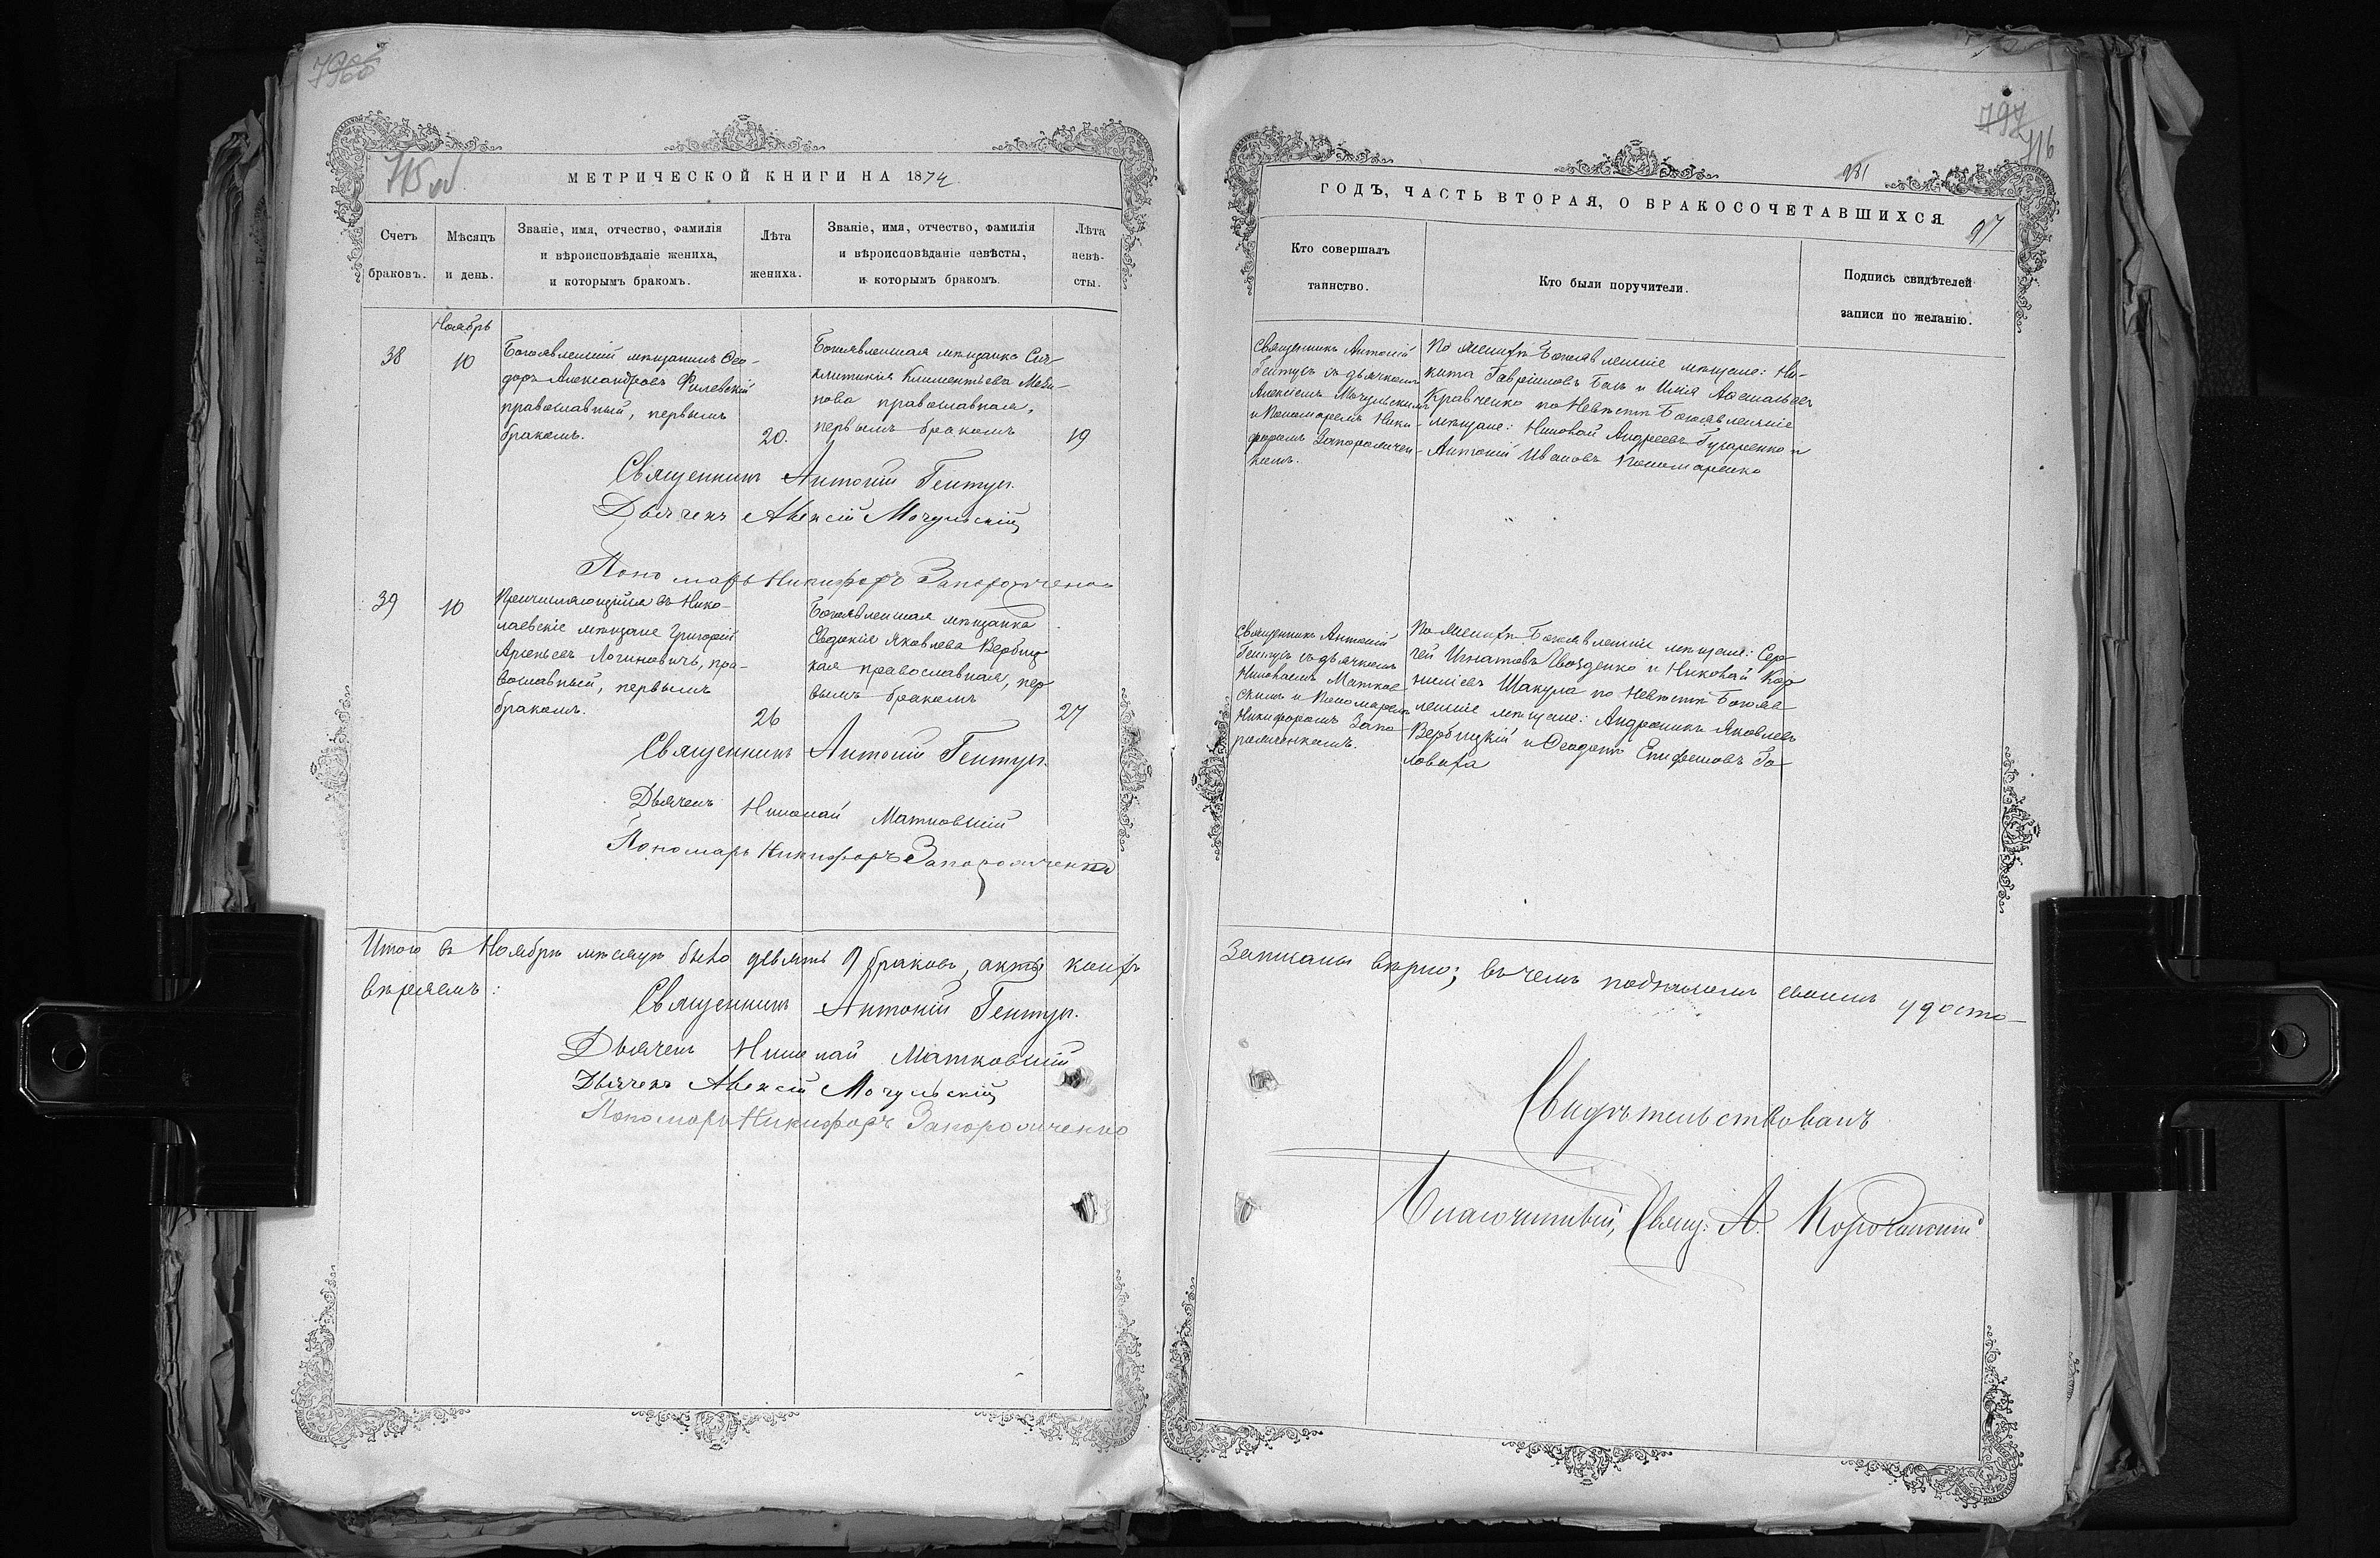 715 об
МЕТРИЧЕСКОЙ КНИГИ НА 1874
Счетъ
браковъ.
Мѣсяцъ
и день.
Званіе, имя, отчество, фамилія
и вѣроисповѣданіе жениха,
и которымъ бракомъ.
Лѣта
жениха.
Званіе, имя, отчество, фамилія
и вѣроисповѣданіе невѣсты,
и которымъ бракомъ.
Лѣта
невѣ-
сты.
Ноябрь
38
10
Богоявленскій мѣщанинъ Ѳео-
доръ Александровъ Филевскій
православный, первымъ
бракомъ.
20.
Богоявленская мѣщанка Син-
клитикія Климентьева
православная,
первымъ бракомъ
19
Священникъ Антоній Гентуъ.
Дьячекъ Алексій Мочульскій
Пономарь Никифоръ Запорожченко
39
10
Причисляющійся въ Нико-
лаевскіе мѣщане Григорій
Арсеньевъ Логиновичъ, пра-
вославный, первымъ
бракомъ.
26
Богоявленская мѣщанка
Евдокія Яковлева Вербиц
кая православная, пер
вымъ бракомъ
27
Священникъ Антоній Гентуъ.
Дьячекъ Николай Матковскій
Пономарь Никифоръ Запорожченко
Итого въ Ноябрѣ мѣсяцѣ было девять 9 браковъ, акты коихъ
вѣряемъ:
Священникъ Антоній Гентуъ.
Дьячекъ Николай Матковскій
Дьячекъ Алексій Мочульскій
Пономарь Никифоръ Запорожченко
797
716
281
97
ГОДЪ, ЧАСТЬ ВТОРАЯ, О БРАКОСОЧЕТАВШИХСЯ.
Кто совершалъ
таинство.
Кто были поручители.
Подпись свидѣтелей
записи по желанію.
Священникъ Антоній
Гентуъ съ дьячкомъ
Алексіемъ Мочульскимъ
и Пономаремъ Ники-
форомъ Запорожчен-
комъ.
По женихѣ Богоявленскіе мѣщане: Ни-
кита Гавріиловъ и Илія
Кравченко по Невѣстѣ Богоявленскіе
мѣщане: Николай Андреевъ и
Антоній Ивановъ Пономаренко
Священникъ Антоній
Гентуъ съ дьячкомъ
Николаемъ Матков
скимъ и Пономаремъ
Никифоромъ Запо
рожченкомъ.
По женихѣ Богоявленскіе мѣщане: Сер-
гей Игнатовъ Гвозденко и Николай Кор
ниліевъ Шакула по Невѣстѣ Богояв-
ленскіе мѣщане: Андроникъ Яковлевъ
Вербицкій и Ѳеодотъ Епифановъ Го-
ловаха
Записаны вѣрно; въ чемъ подписомъ своимъ удосто-
Свидѣтельствовалъ
Благочинный, Свящ: А.